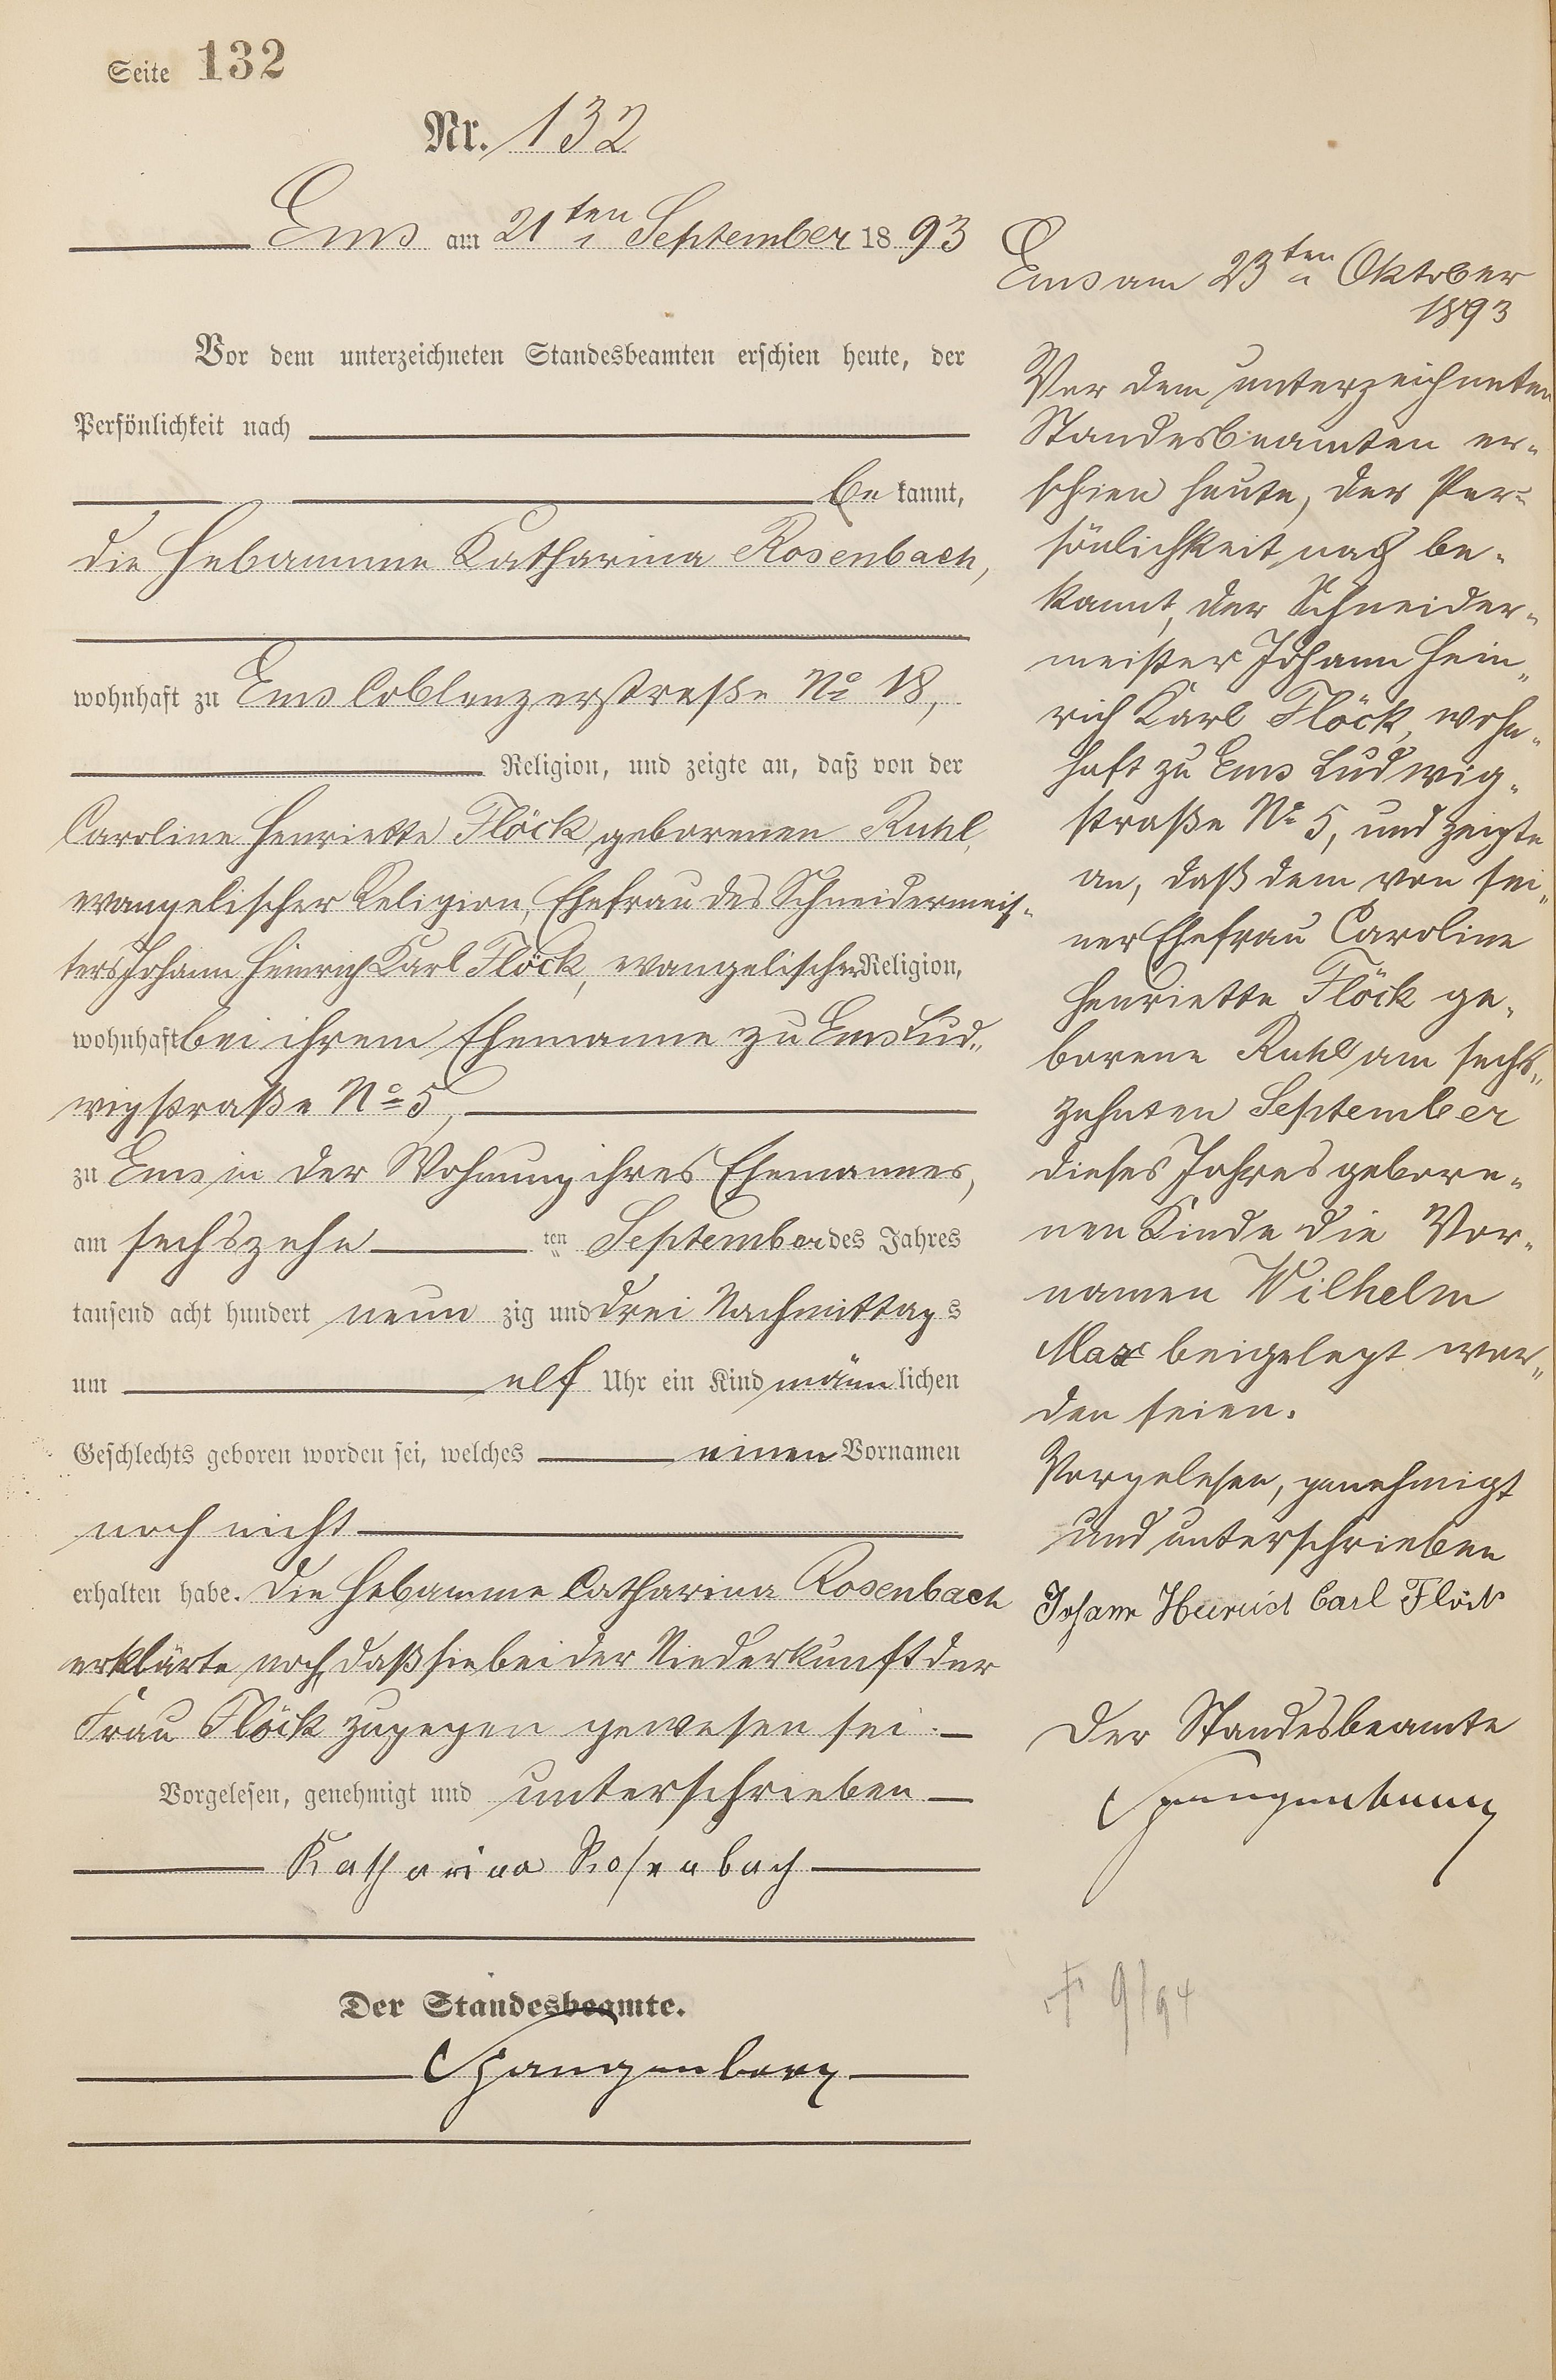 Seite 132
Nr. 132
Ems am 21ten September 1893
Vor dem unterzeichneten Standesbeamten erschien heute, der
Persönlichkeit nach
be kannt,
die Hebamme Katharina Rosenbach,
wohnhaft zu Ems Coblenzerstraße No 18,
Religion, und zeigte an, daß von der
Caroline Henriette Flöck, geborenen Ruhl,
evangelischer Religion, Ehefrau des Schneidermeis-
ters Johann Heinrich Karl Flöck, evangelischer Religion,
wohnhaft bei ihrem Ehemanne zu Ems Lud-
wigstraße No 5,
zu Ems in der Wohnung ihres Ehemannes,
am sechszehn ten September des Jahres
tausend acht hundert neun zig und drei Nachmittags
um elf Uhr ein Kind männlichen
Geschlechts geboren worden sei, welches einen Vornamen
noch nicht
erhalten habe. Die Hebamme Catharina Rosenbach
erklärte noch, daß sie bei der Niederkunft der
Frau Flöck zugegen gewesen sei.
Vorgelesen, genehmigt und unterschrieben
Katharina Rosenbach
Der Standesbeamte.
Spangenberg
Ems am 23ten Oktober
1893
Vor dem unterzeichneten
Standesbeamten er-
schien heute, der Per-
sönlichkeit nach be-
kannt, der Schneider-
meister Johann Hein-
rich Karl Flöck, wohn-
haft zu Ems Ludwig-
straße No 5, und zeigte
an, daß dem von sei-
ner Ehefrau Caroline
Henriette Flöck ge-
borene Ruhl am sechs-
zehnten September
dieses Jahres gebore-
nen Kinde die Vor-
namen Wilhelm
Max beigelegt wor-
den seien.
Vorgelesen, genehmigt
und unterschrieben
Johann Heinrich Carl Flöck
Der Standesbeamte
Spangenberg
† 9/94